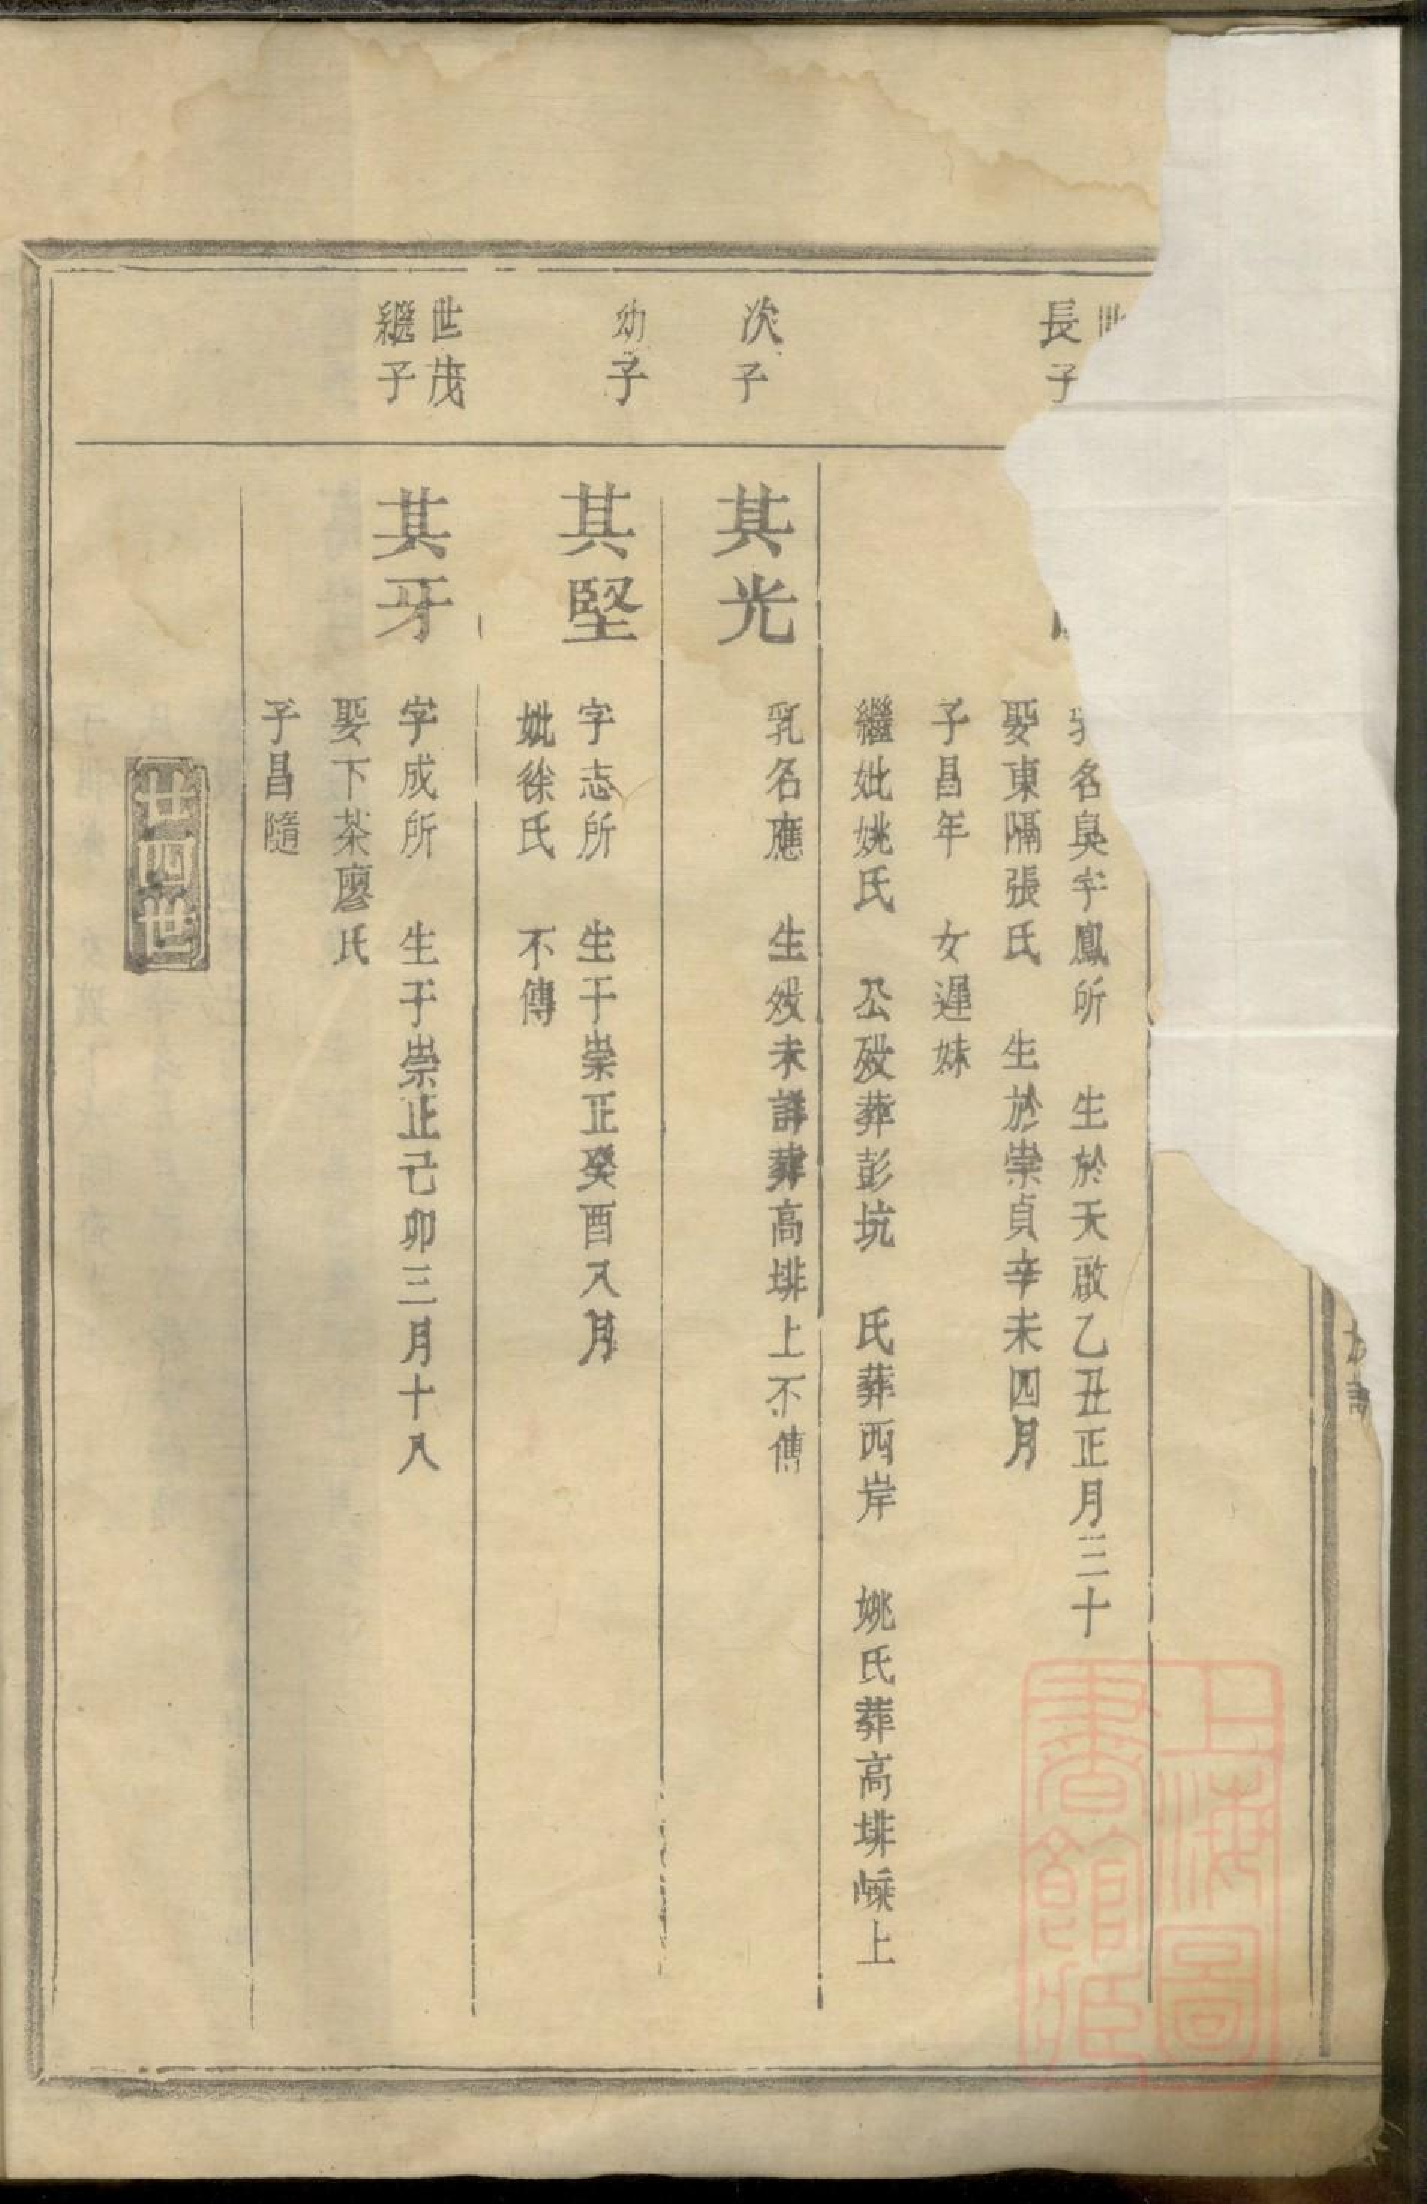 長子
名臭字鳳所　生於天啟乙丑正月三十
娶東隔張氏　生於崇貞辛未四月
子昌年　女遲妹
繼妣姚氏　公歿葬彭坑　氏葬西岸　姚氏葬高埪㟻上
次子
其光
乳名應　生歿未詳葬高埪上不傳
幼子
其堅
字志所　生于崇正癸酉八月
妣徐氏　不傳
世茂
繼子
其牙
字成所　生于崇正己卯三月十八
娶下茶廖氏
子昌隨
廿四世
上海圖
書館藏